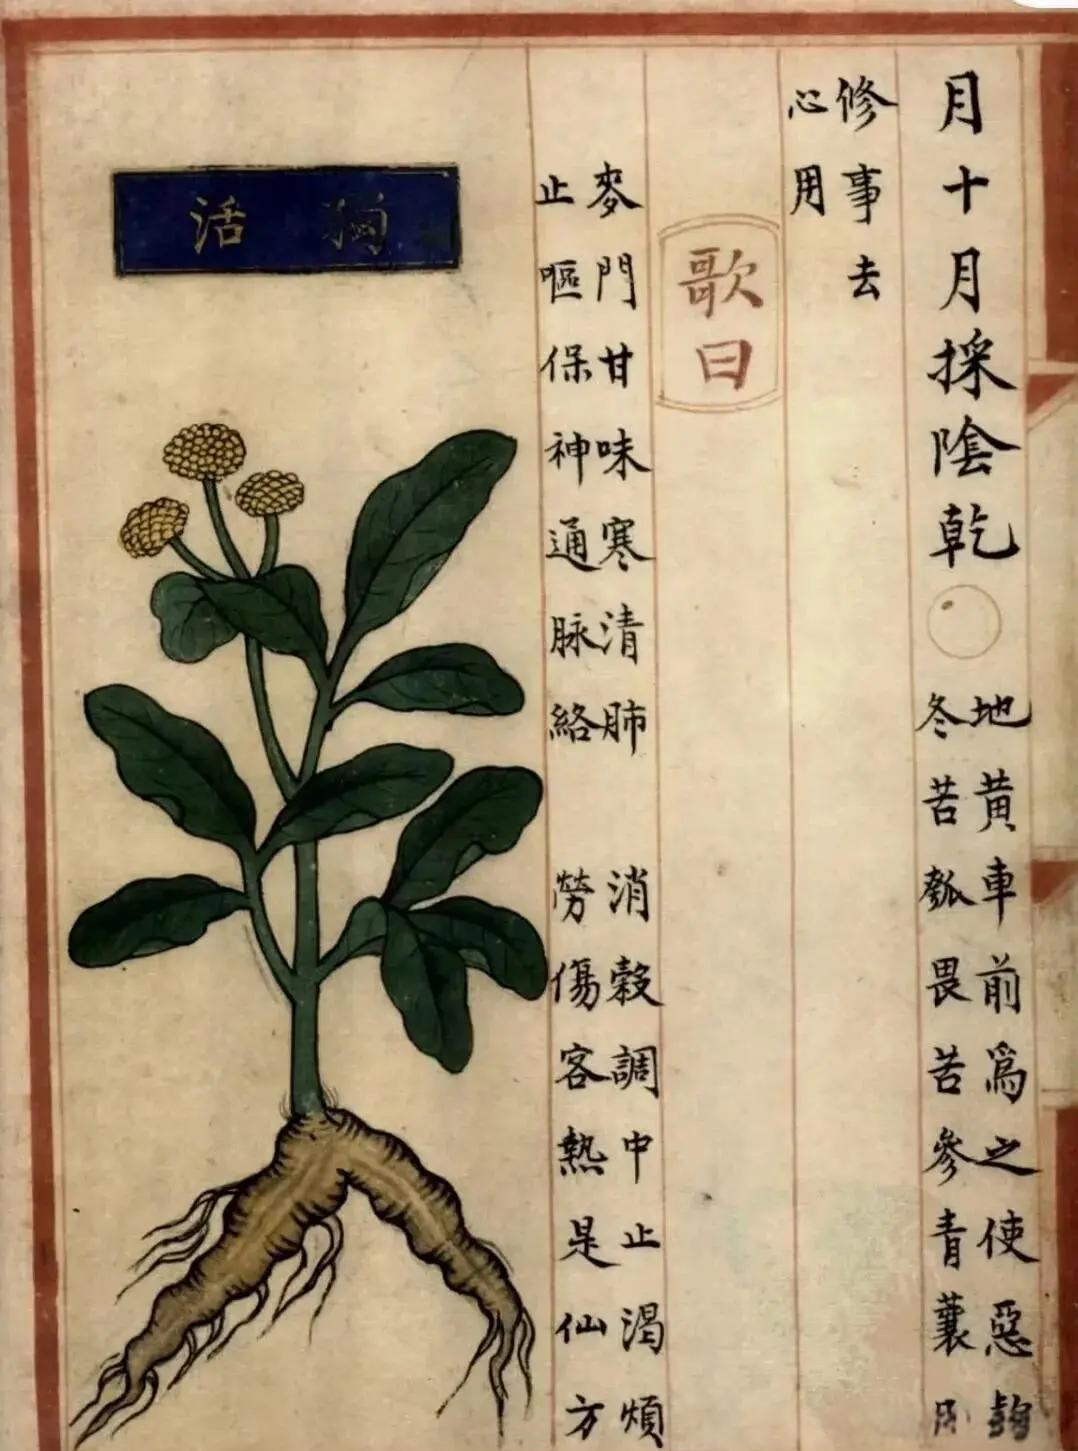 月十月採陰乾
地黃車前爲之使惡
冬苦瓠畏苦參青蘘
修事去
心用
歌曰
麥門甘味寒清肺 消穀調中止渴煩
止嘔保神通脉絡 勞傷客熱是仙方
獨活